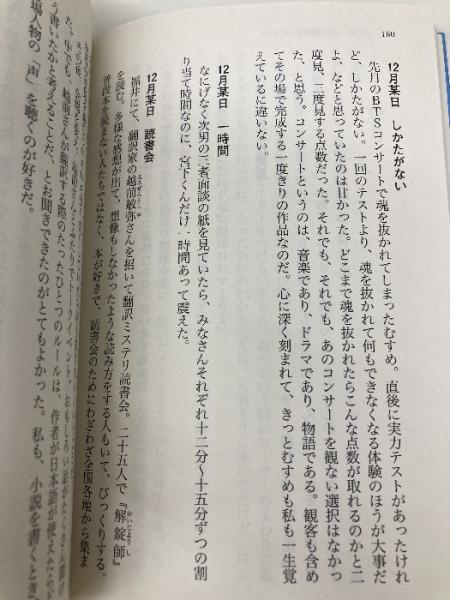 180
12月某日 しかたがない
先月のBTSコンサートで魂を抜かれてしまったむすめ。直後に実力テストがあったけれ
ど、しかたがない。一回のテストより、魂を抜かれて何もできなくなる体験のほうが大事だ
よ、などと思っていたのは甘かった。どこまで魂を抜かれたらこんな点数が取れるのかと二
度見、三度見する点数だった。それでも、それでも、あのコンサートを観ない選択はなかっ
た、と思う。コンサートというのは、音楽であり、ドラマであり、物語である。観客も含め
てその場で完成する一度きりの作品なのだ。心に深く刻まれて、きっとむすめも私も一生覚
えているに違いない。
12月某日 一時間
なにげなく次男の三者面談の紙を見ていたら、みなさんそれぞれ十二分〜十五分ずつの割
り当て時間なのに、宮下くんだけ一時間あって震えた。
12月某日 読書会
福井にて、翻訳家の越前敏弥さんを招いて翻訳ミステリ読書会。二十五人で『解錠師』
を読む。多様な感想が出て、想像もしなかったような読み方をする人もいて、びっくりする。
普段本を読まない人たちではなく、本が好きで、読書会のためにわざわざ全国各地から集ま
イベント。おもしろい話がたくさん
た。中でも、越前さんが翻訳する際のたったひとつのルールは、作者が日本語が使えたらど
う書いたかと考えることだ、とお聞きできたのがとてもよかった。私も、小説を書くとき
場人物の「声」を聴くのが好きだ。